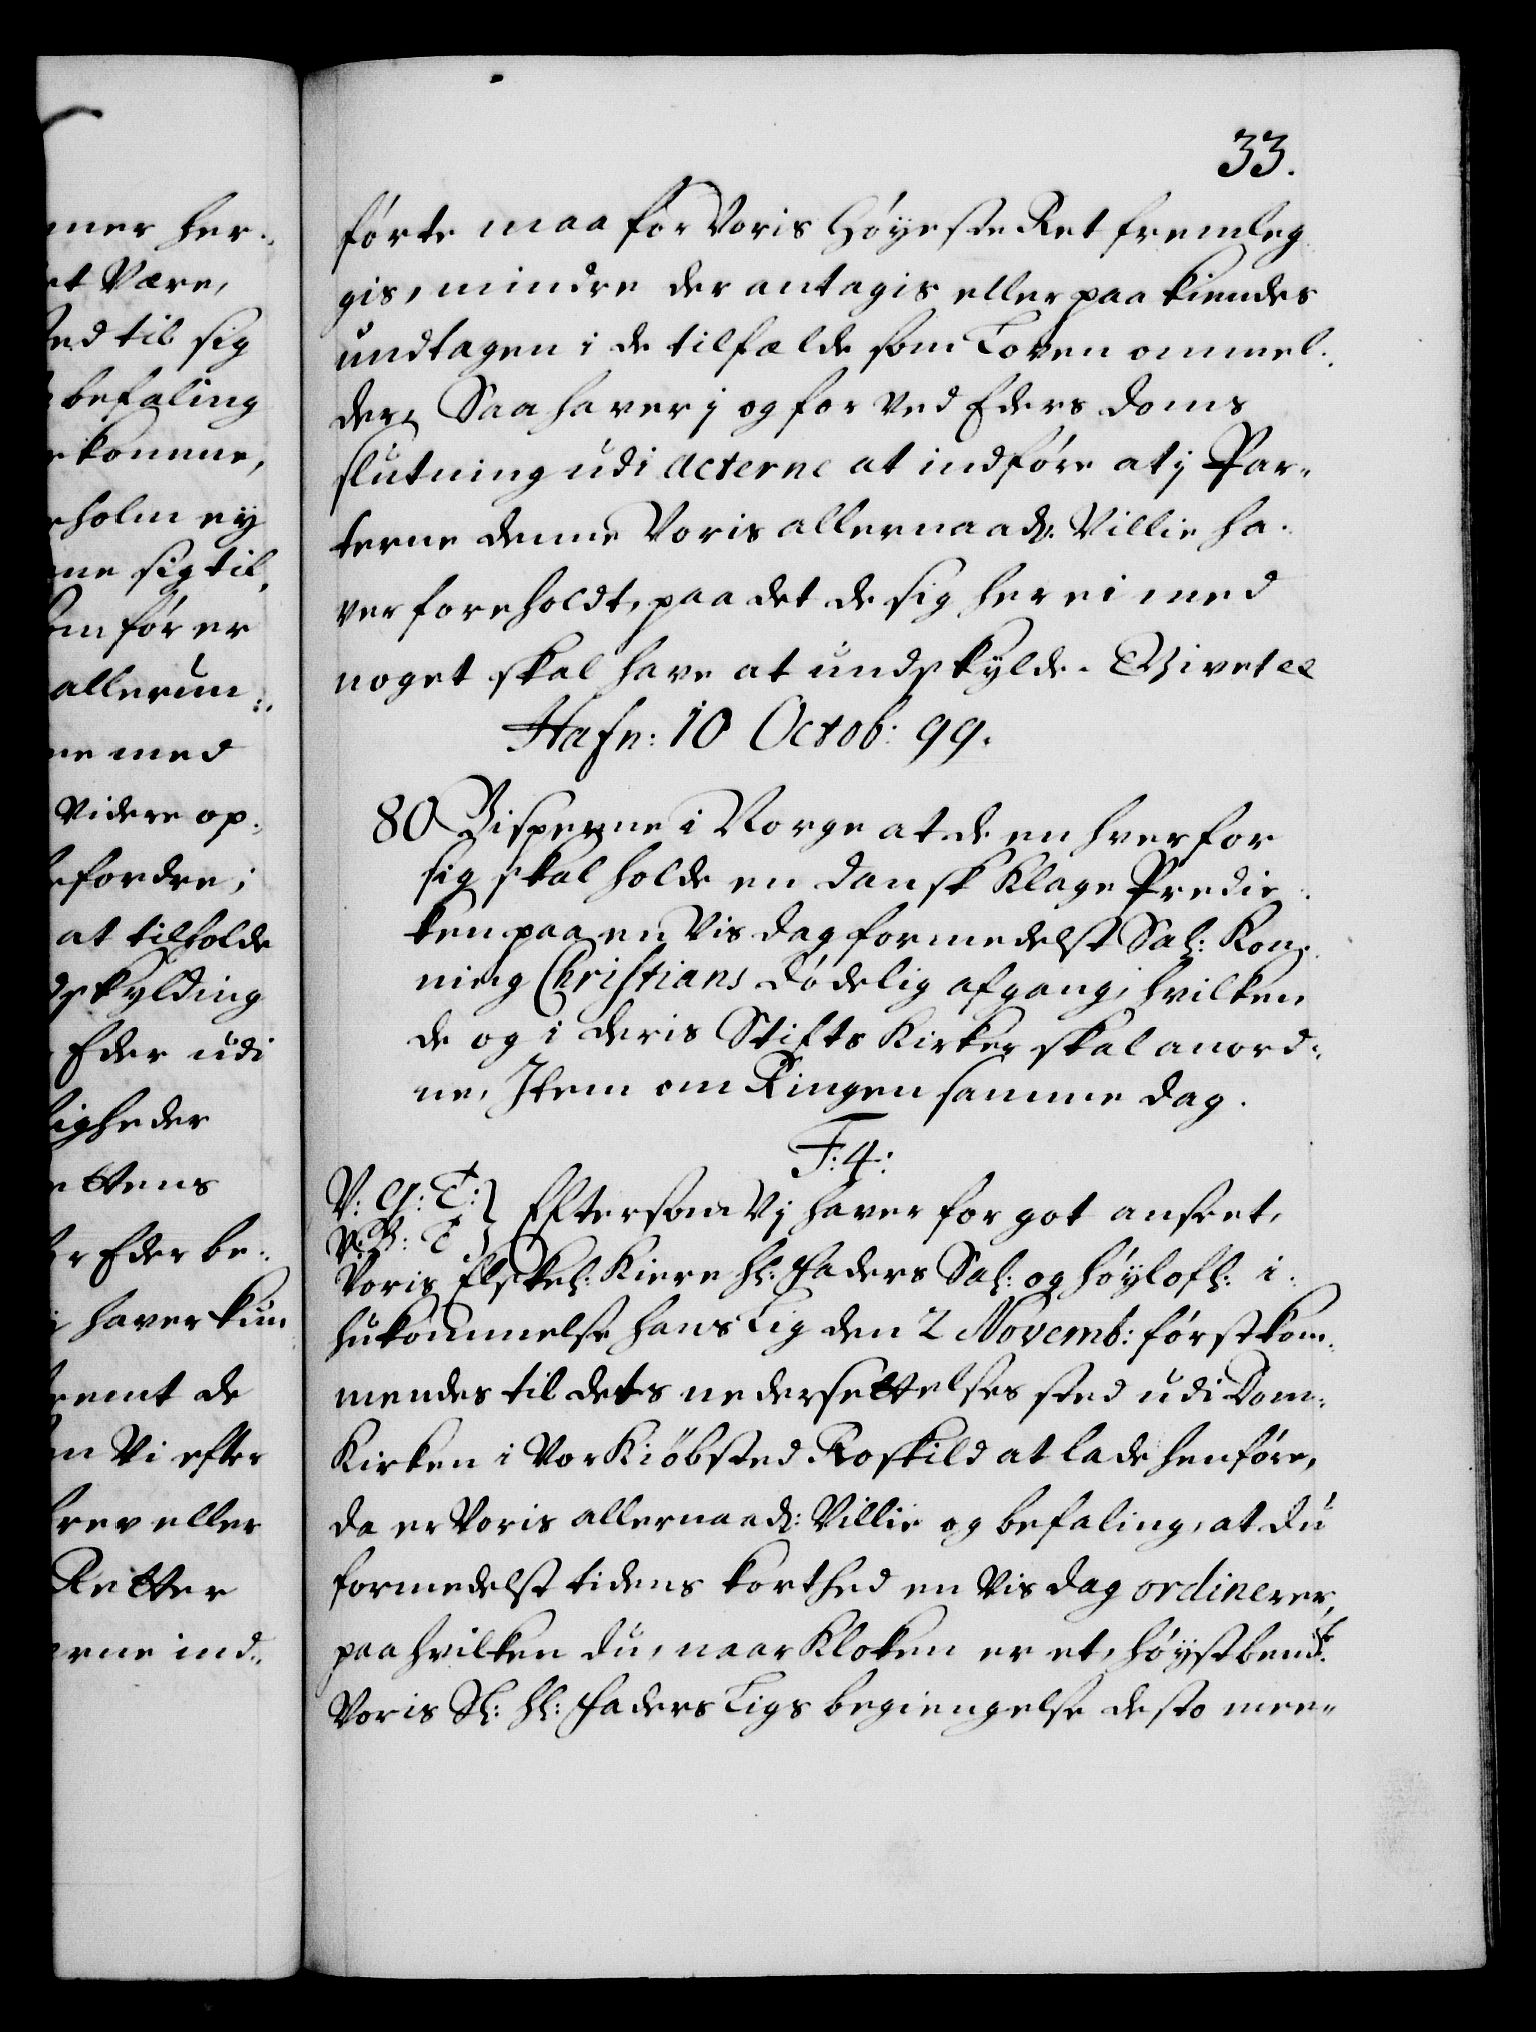 33.
førte maa for Voris Høyeste Ret fremleg
gis, mindre der antagis eller paakiendes
undtagen i de tilfælde som Loven ommel..
der, Saa haver i og for ved Eders doms
slutning udi Acterne at indføre at i Par-
terne denne Voris allernaadr: Villie ha-
ver foreholdt, paa det de sig her ei med
noget skal have at undskylde. Givet ec
Hafn: 10 Octob: 99.
80 Bisperne i Norge at de en hver for
sig skal holde en dansk Klage Predic-
ken paa en Vis dag formedelst Sal: Kon-
ning Christians dødelig afgang, hvilken
de og i deris Stifts Kirker skal anord-
ne, Item om Ringen samme dag.
F: 4:
V: G: T: } Eftersom Vj haver for got anseet,
V: B: T }
Voris Elskel: Kiere Hr: Faders Sal: og høylofl: i-
hukommelse hans Lig den 2 Novemb: førstkom-
mendes til dets nedersettelses sted udi Dom-
Kirken i Vor Kiøbsted Roskild at lade henføre,
da er Voris allernaad: Villie og befaling, at du
formedelst tidens korthed en Vis dag ordinerer,
paa hvilken du, naar Kloken er et, høystbemt.
Voris Sl: Hr: Faders Ligs begiengelse desto mee-
mer her..
et Være,
ed til sig
befaling
ekomme,
holm ey
ne sig til,
om før er
allerun..
ne med
Videre op-
efordre;
at tilholde
dskylding
Eder udi
ligheder
ettens
r Eder be..
haver kun
emt de
n Vi efter
rev eller
Retter
erne ind..